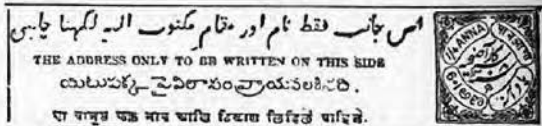 اس جانب فقط نام اور مقام مکتوب الیہ لکھنا چاہیی
THE ADDRESS ONLY TO BE WRITTEN ON THIS SIDE
యిటుపక్క పైవిలాసంవ్రాయవలశినది.
या बाजूस फक्त नाव आणि ठिकाण लिहिलें पाहिजे.
1/4 ANNA